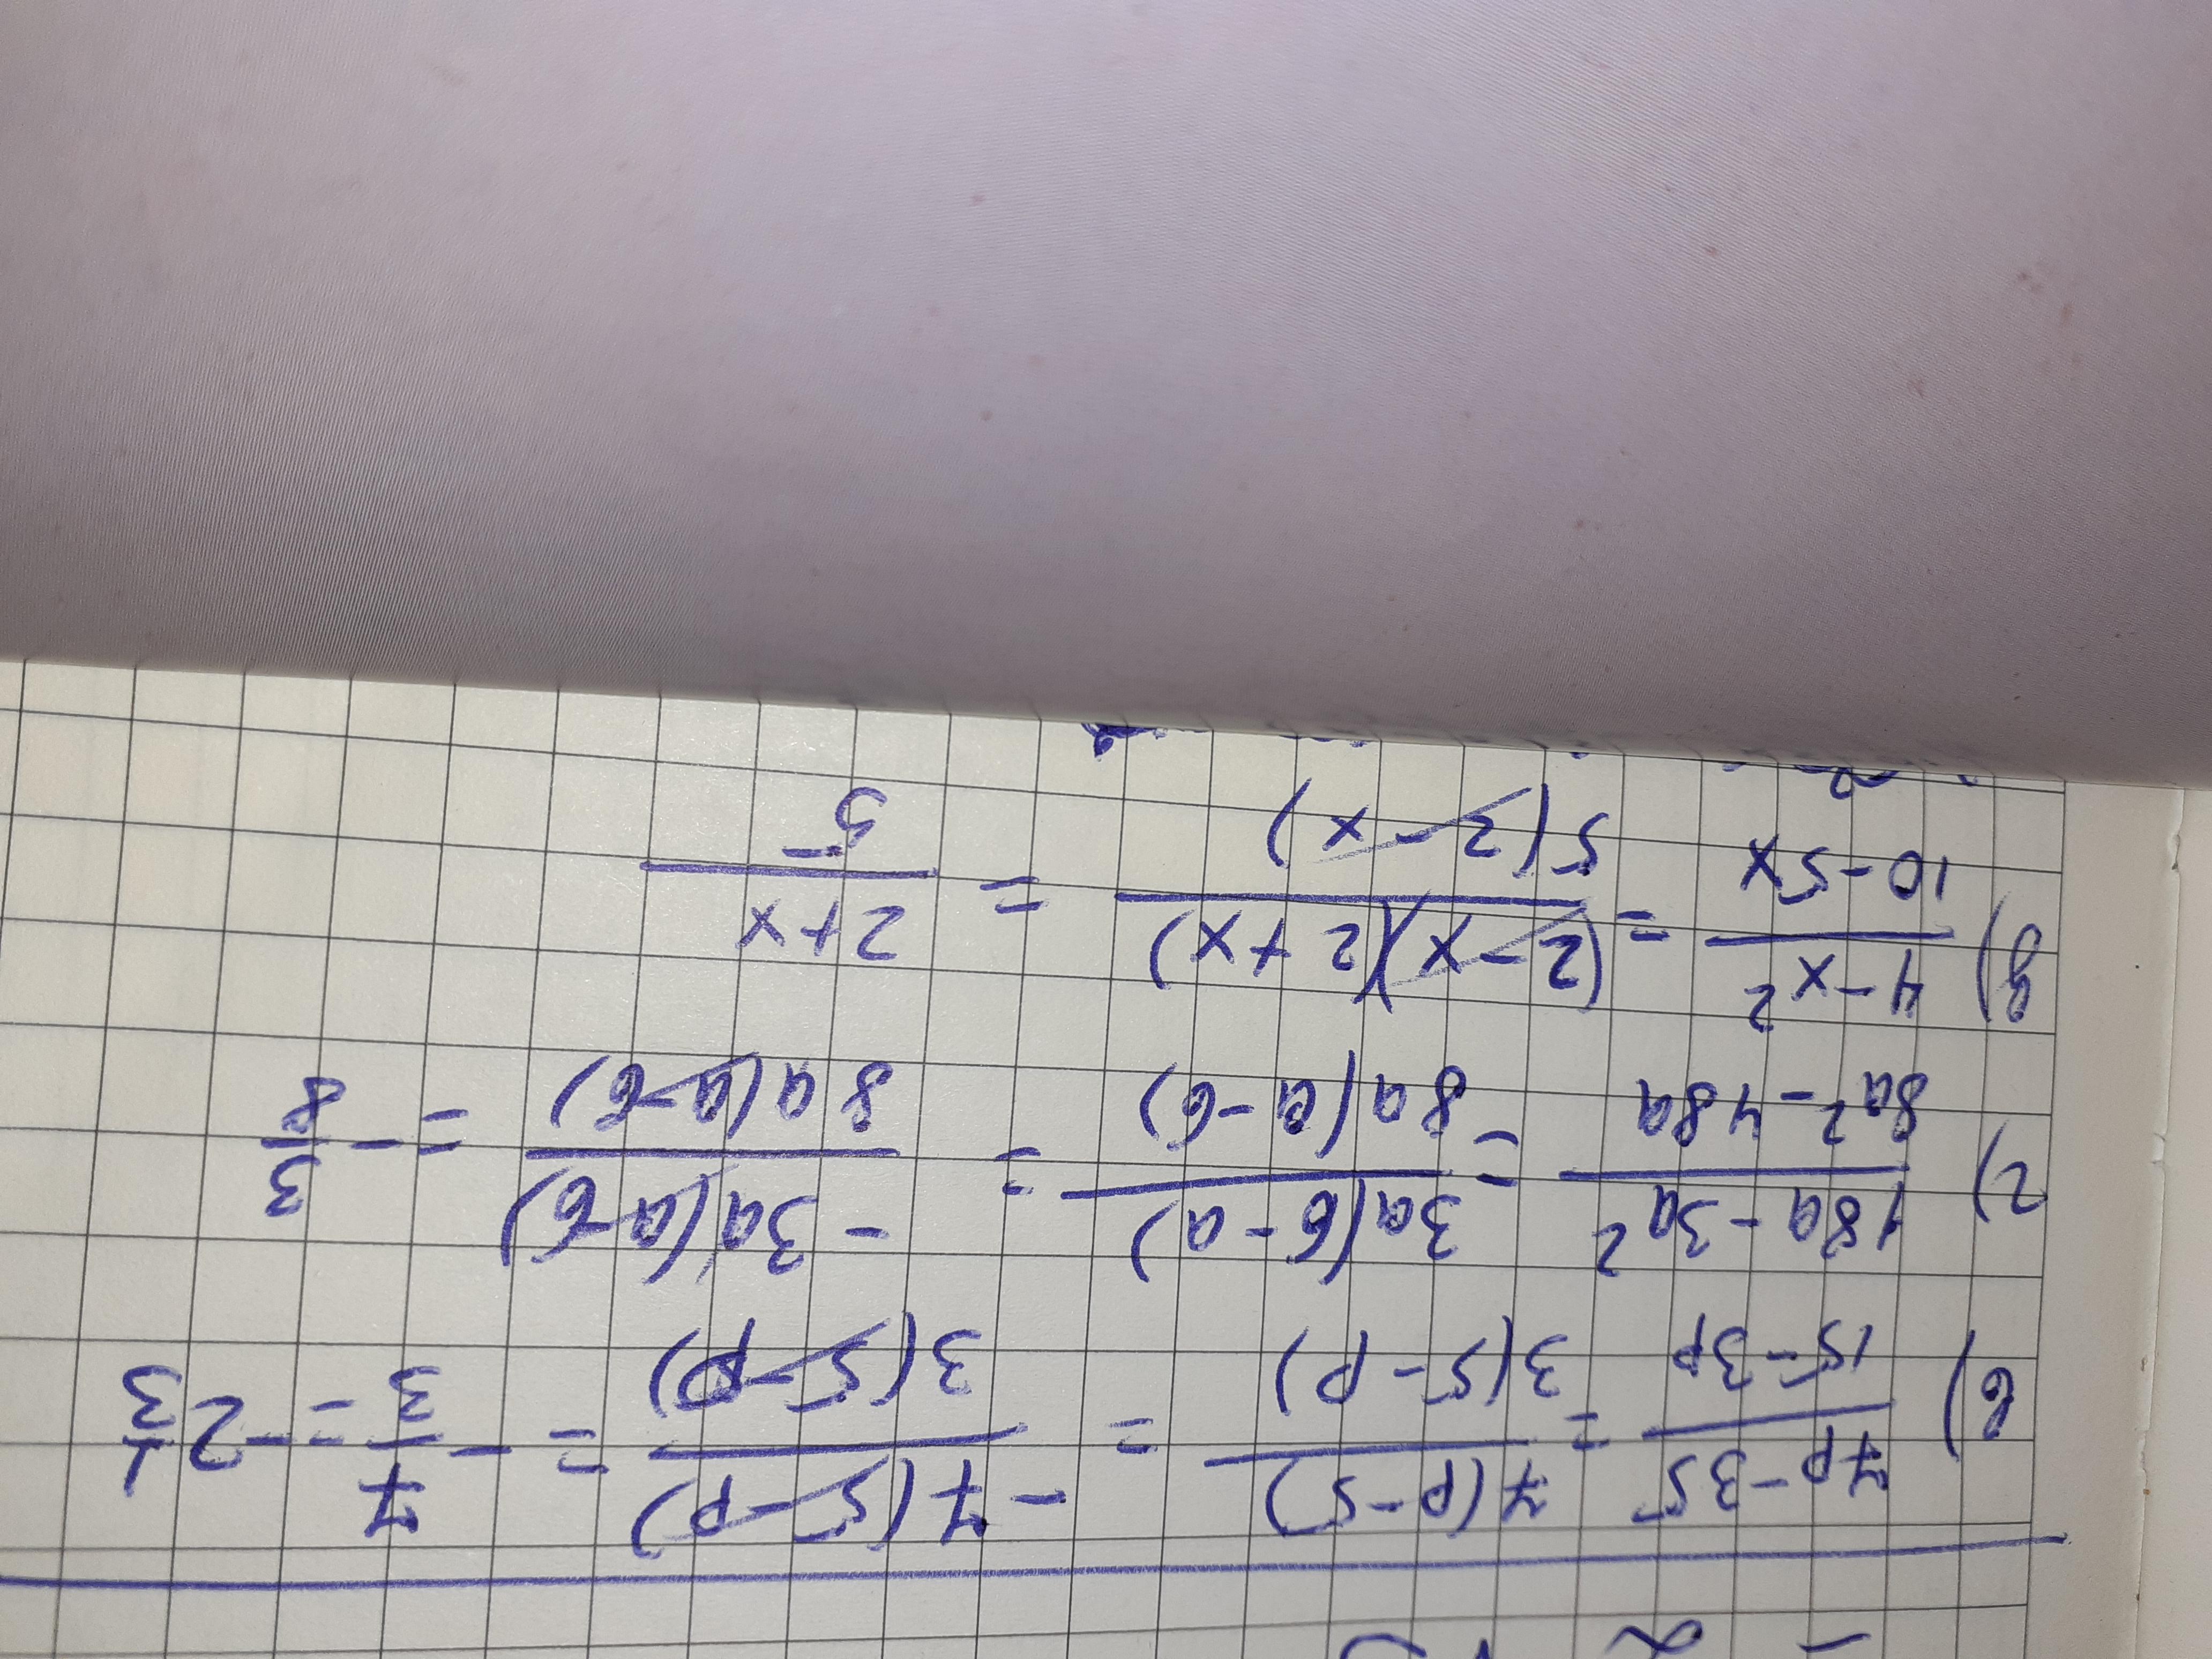 в) (7p-35)/(15-3p) = (7(p-5))/(3(5-p)) = (-7(5-p))/(3(5-p)) = -7/3 = -2 1/3
г) (18a-3a²)/(8a²-48a) = (3a(6-a))/(8a(a-6)) = (-3a(a-6))/(8a(a-6)) = -3/8
д) (4-x²)/(10-5x) = ((2-x)(2+x))/(5(2-x)) = (2+x)/5